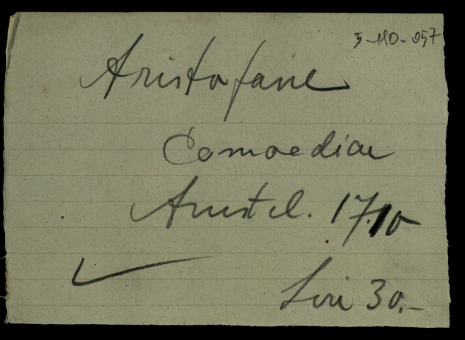 5-180-057
Aristofane
Comoediae
Amstel. 1710
Lire 30.-